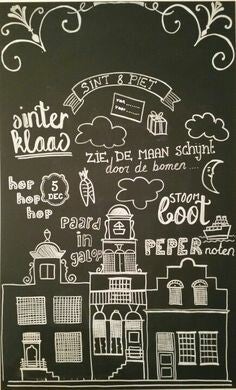 SINT & PIET
van .......
voor .......
sinter
klaas
ZIE, DE MAAN schijnt
door de bomen ....
hop
hop
hop
5
DEC
paard
in
galop
STOOM
boot
PEPER
noten